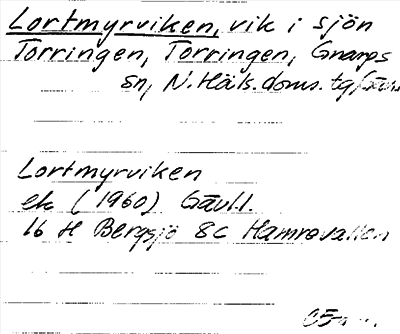 Lortmyrviken, vik i sjön
Torringen, Torringen, Gnarps
sn, N. Häls. doms. tg, Gävl.
Lortmyrviken
ek (1960) Gävl.l.
16 H Bergsjö 8c Hamrovallen